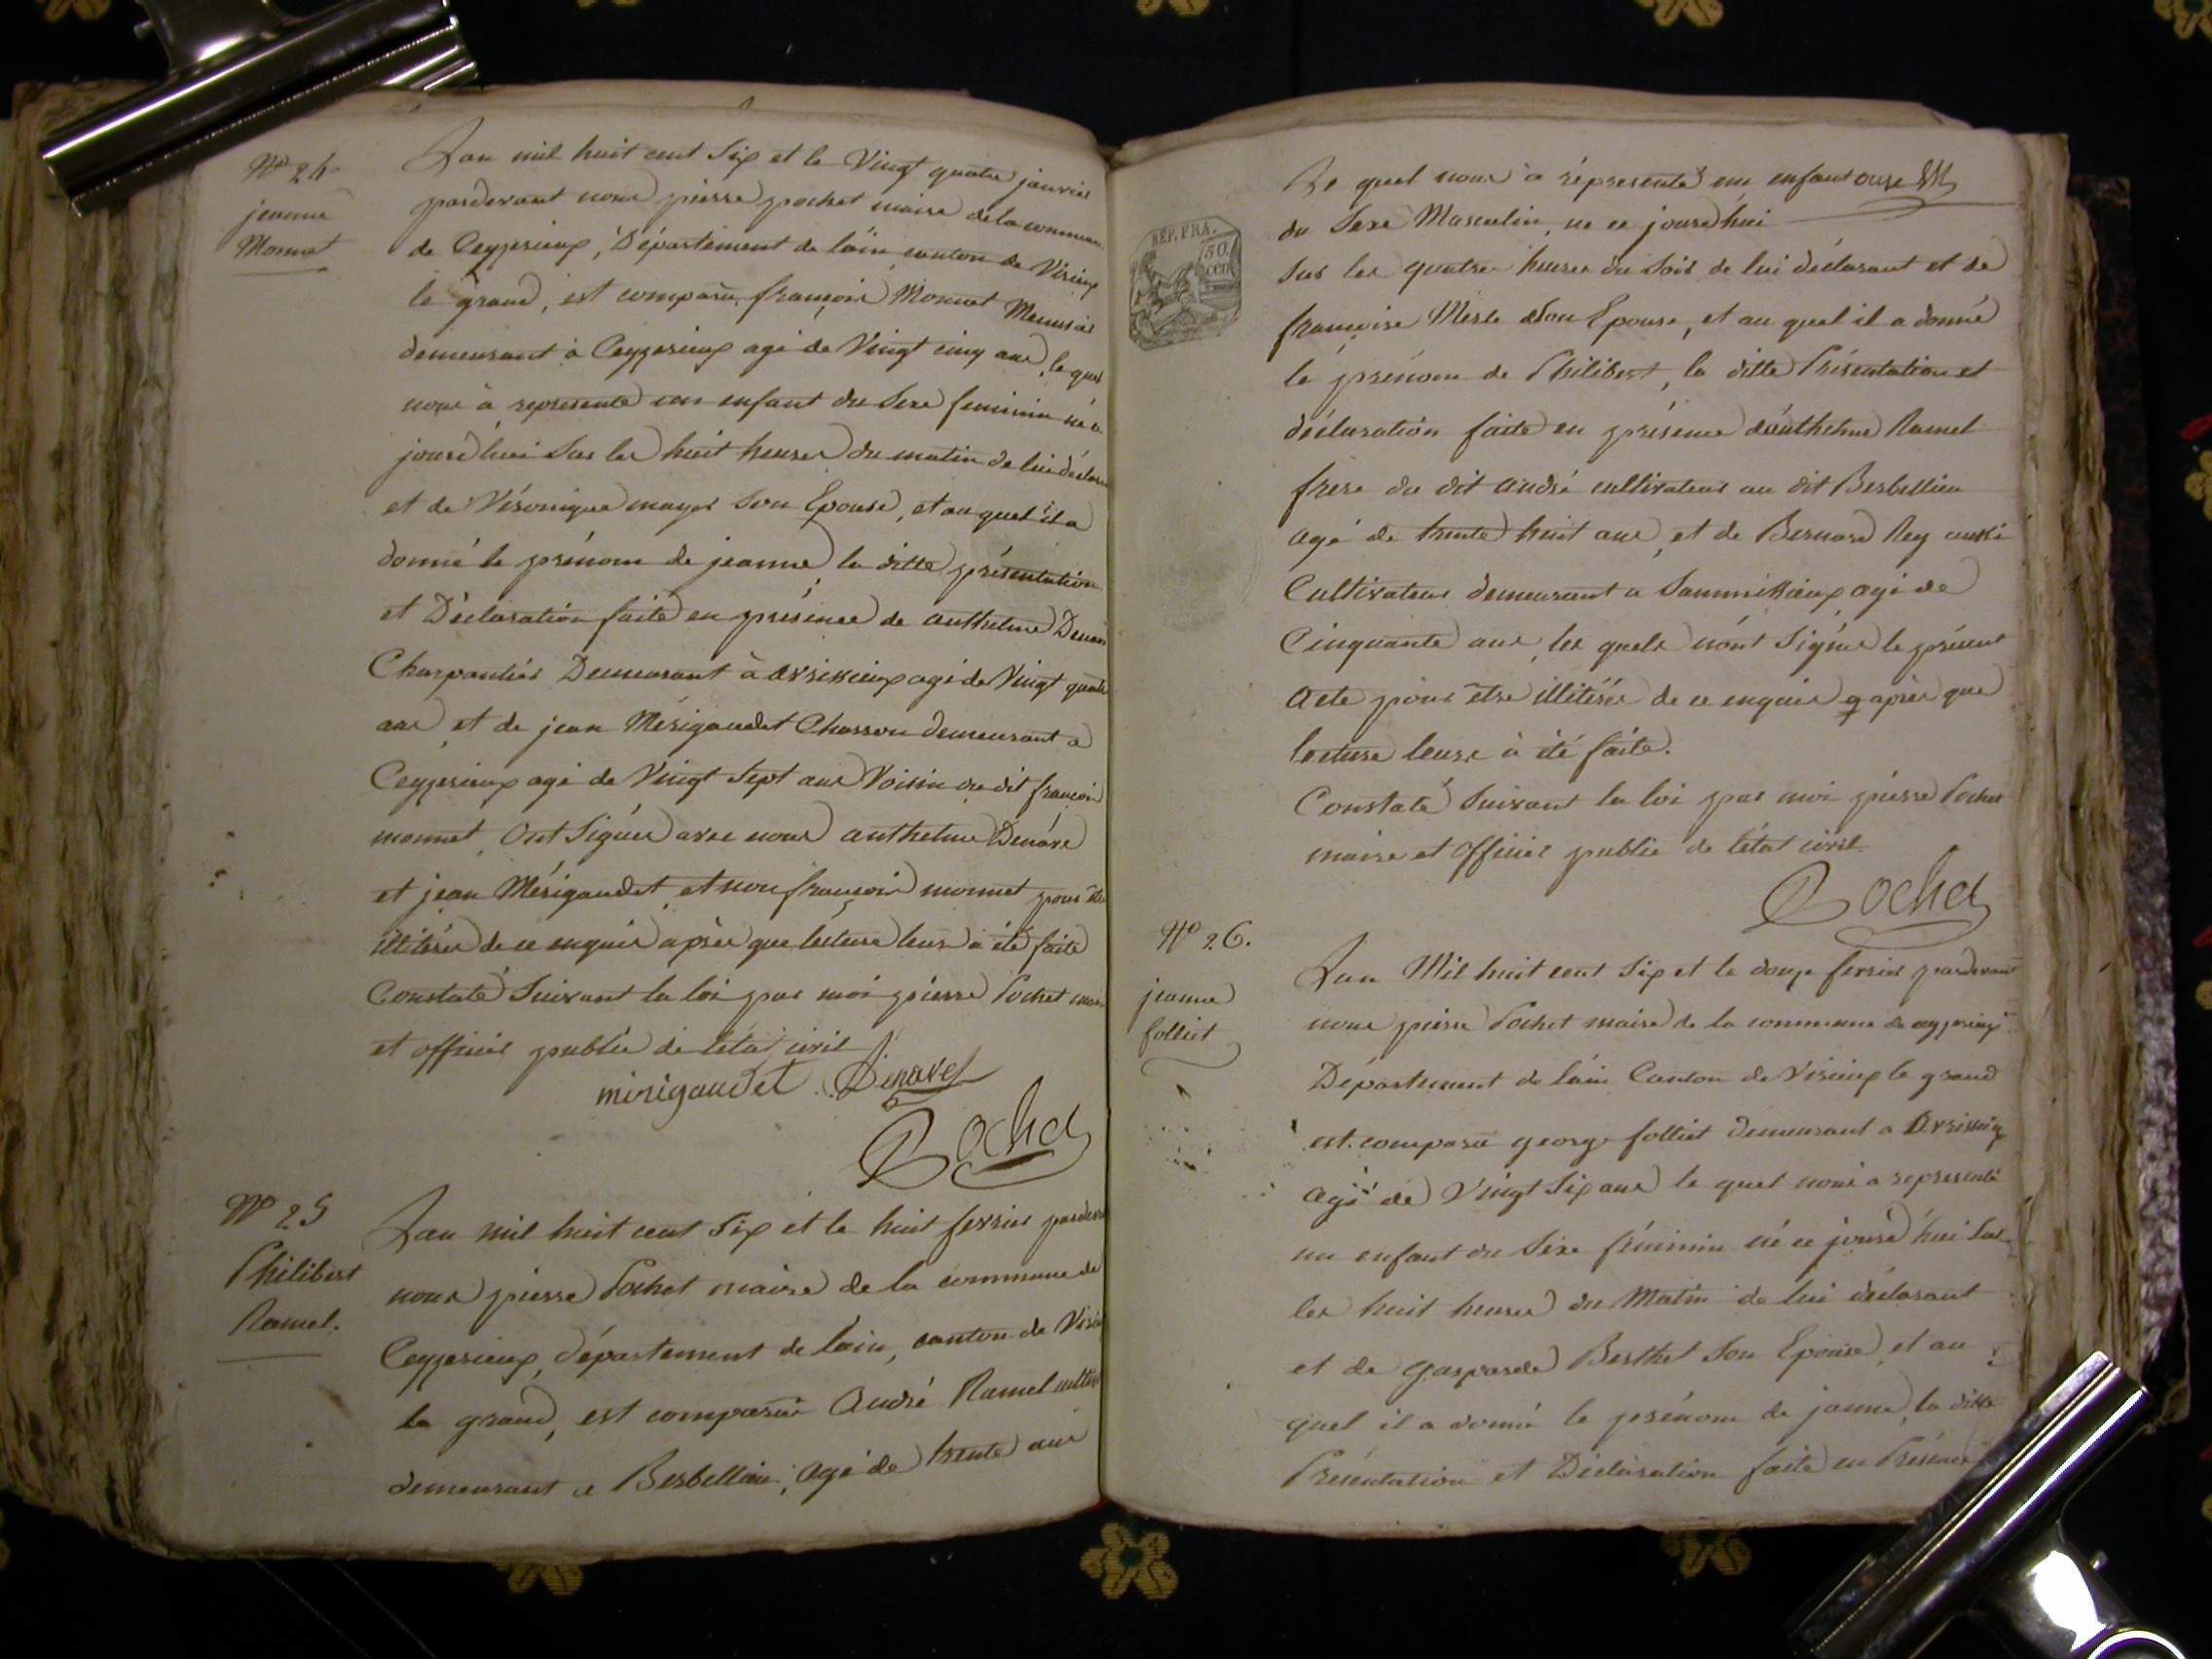 N° 24
jeanne
Monnet
Lan mil huit cent Six et le Vingt quatre janvier
pardevant nous pierre pochet maire de la commune
de Ceyzerieux, Département de lain, canton de Virieux
le grand, est comparu, françois Monnet Meunier
demeurant à Ceyzerieux agé de Vingt cinq ans, le quel
nous à représenté un enfant du Sexe feminin né ce
jourd'hui Sur les huit heures du matin de lui déclarant
et de Véronique mayer Son Epouse, et au quel il a
donné le prénom de jeanne, la ditte présentation
et Déclaration faite en présence de anthelme
Charpentier Demeurant à avrissieux agé de Vingt quatre
ans, et de jean Mérigaudet Charron demeurant a
Ceyzerieux agé de Vingt Sept ans Voisin du dit françois
monnet, Ont Signés avec nous anthelme Dénare
et jean Mérigaudet, et non françois monnet pour être
illitéré de ce enquis après que lecture leur à été faite
Constaté Suivant la loi par moi pierre Pochet maire
et officier public de létat civil
mérigaudet Denaret
Pochet
N° 25
Philibert
Ramel.
Lan mil huit cent Six et le huit fevrier pardevant
nous pierre Pochet maire de la commune de
Ceyzerieux, département de lain, canton de
le grand, est comparu André Ramel
demeurant a Berbellieu, agé de trente ans
REP. FRA.
50
cen
Le quel nous à réprésenté un enfant
du Sexe Masculin, né ce jourd'hui
Sur les quatre heures du Soir de lui déclarant et de
françoise Merle Son Epouse, et au quel il a donné
le prénom de Philibert, la ditte Présentation et
déclaration faite en présence d'anthelme Ramel
frere du dit andré cultivateur au dit Berbellieu
agé de trente huit ans, et de Bernard Rey aussi
Cultivateur demeurant a agé de
Cinquante ans, les quels n'ont Signés le présent
acte pour être illitérés de ce enquis après que
lecture leurs à été faite.
Constaté Suivant la loi par moi pierre Pochet
maire et officier public de létat civil.
Pochet
N° 26.
jeanne
folliet
Lan Mil huit cent Six et le douze fevrier pardevant
nous pierre Pochet maire de la commune de ceyzerieux
Département de lain Canton de Virieux le grand
est comparu george folliet demeurant a avrissieux
agé de Vingt Six ans le quel nous a représenté
un enfant du Sexe féminin né ce jourd'hui Sur
les huit heures du Matin de lui déclarant
et de gasparde Berthet Son Epouse, et au
quel il a donné le prénom de jeanne, la ditte
Présentation et Déclaration faite en Présence